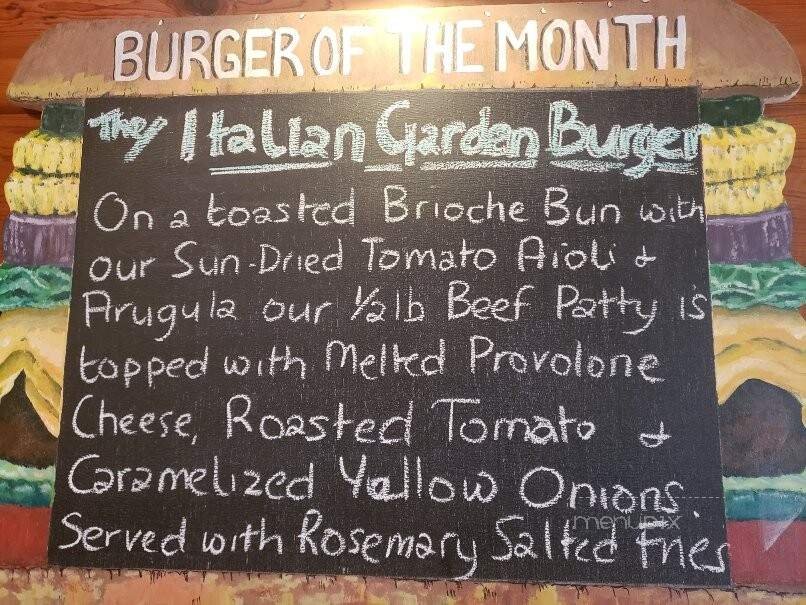 BURGER OF THE MONTH
They Italian Garden Burger
On a toasted Brioche Bun with
our Sun-Dried Tomato Aioli &
Arugula our 1/2lb Beef Patty is
topped with Melted Provolone
Cheese, Roasted Tomato &
Caramelized Yellow Onions.
Served with Rosemary Salted Fries
menupix